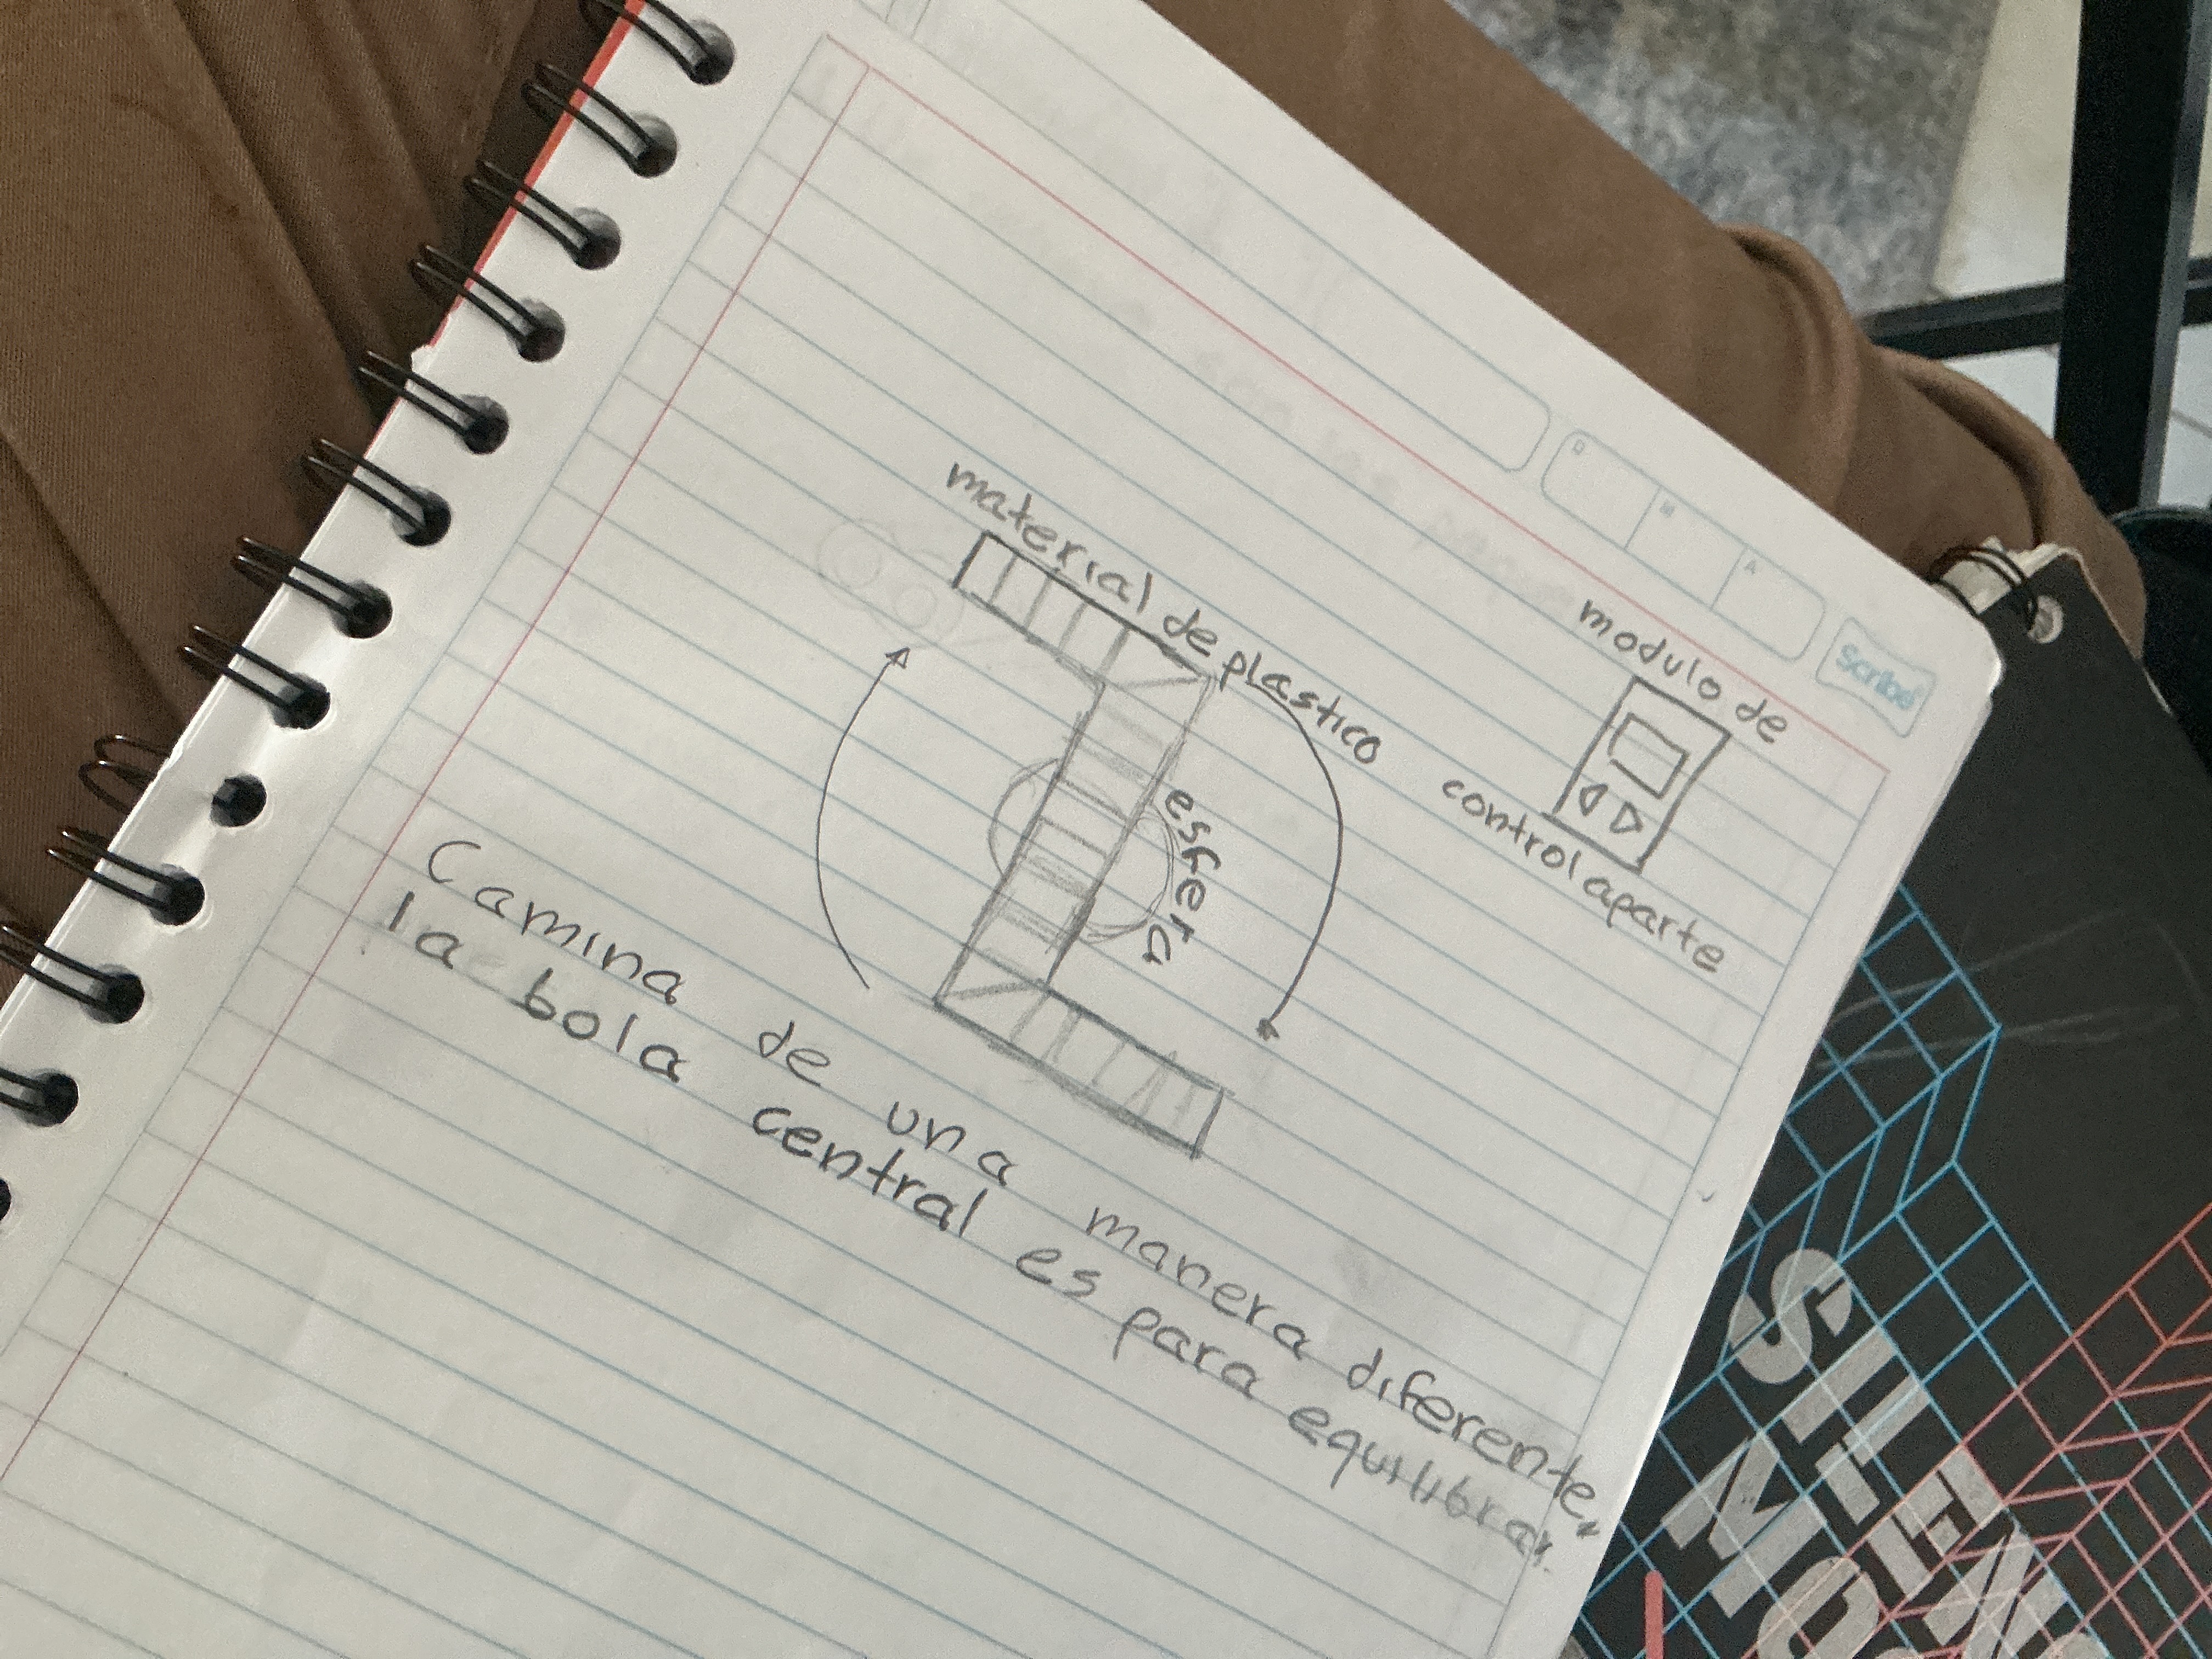 Scribe
D M A
modulo de
control aparte
material de plastico
esfera
Camina de una manera diferente.
la bola central es para equilibrar.